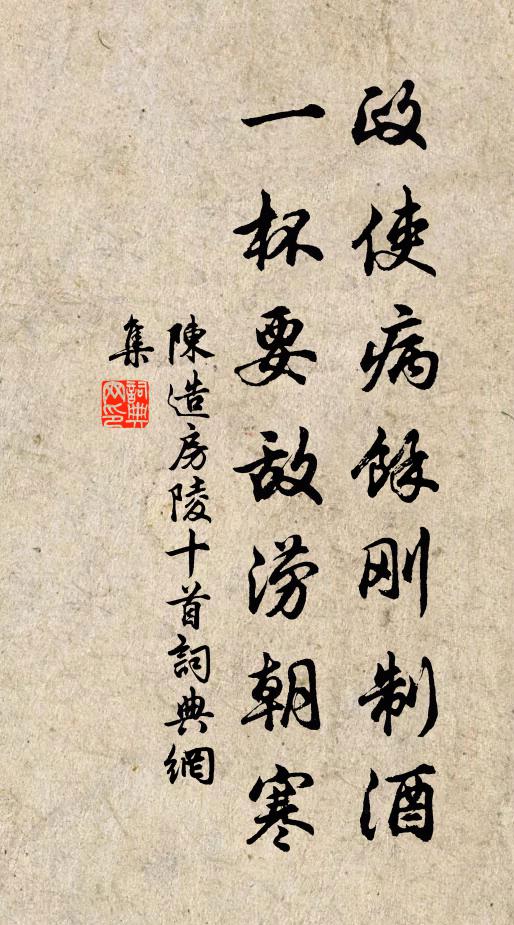 政使病餘刚制酒
一杯要敌涝朝寒
陳造房陵十首詞典網
集
詞典
网印